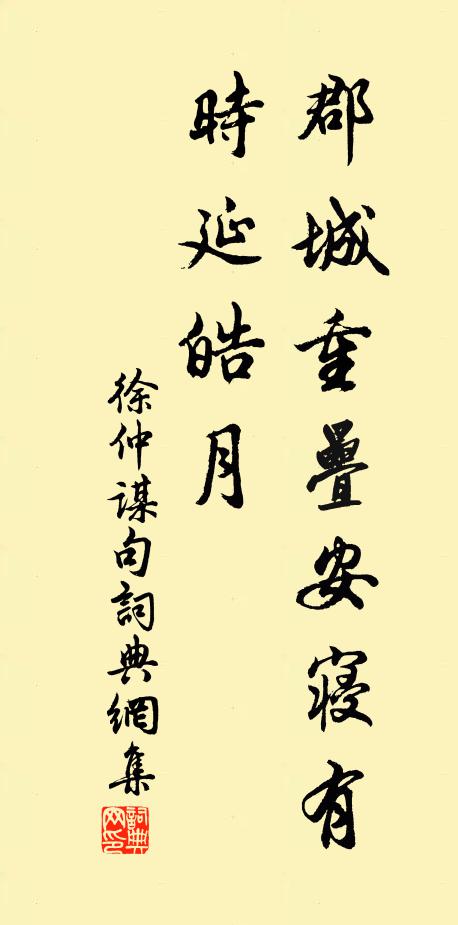 郡城重疊安寢有
時延皓月
徐仲謀句詞典網集
詞典网印